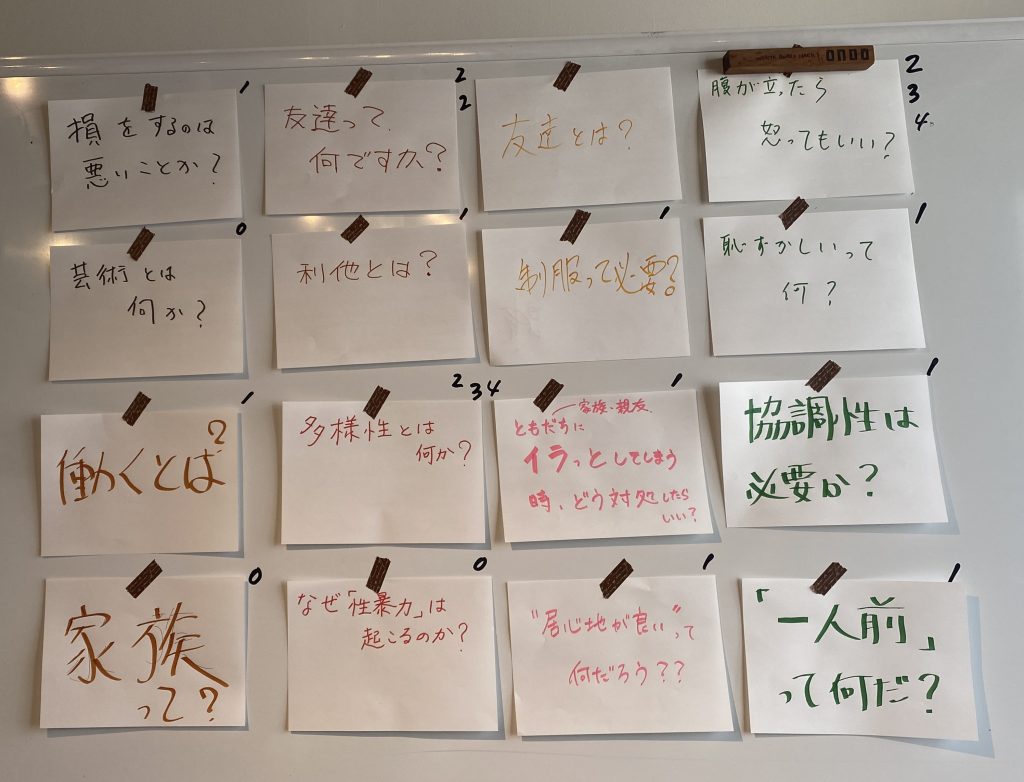 損をするのは
悪いことか?
1
友達って
何ですか?
2
2
友達とは?
ondo
腹が立ったら
怒ってもいい?
2
3
4
芸術とは
何か?
0
利他とは?
1
制服って必要?
1
恥ずかしいって
何?
1
働くとは?
1
多様性とは
何か?
2 3 4
家族・親友
ともだちに
イラっとしてしまう
時、どう対処したら
いい?
1
協調性は
必要か?
1
家族
って?
0
なぜ「性暴力」は
起こるのか?
0
"居心地が良い"って
何だろう??
1
「一人前」
って何だ?
1